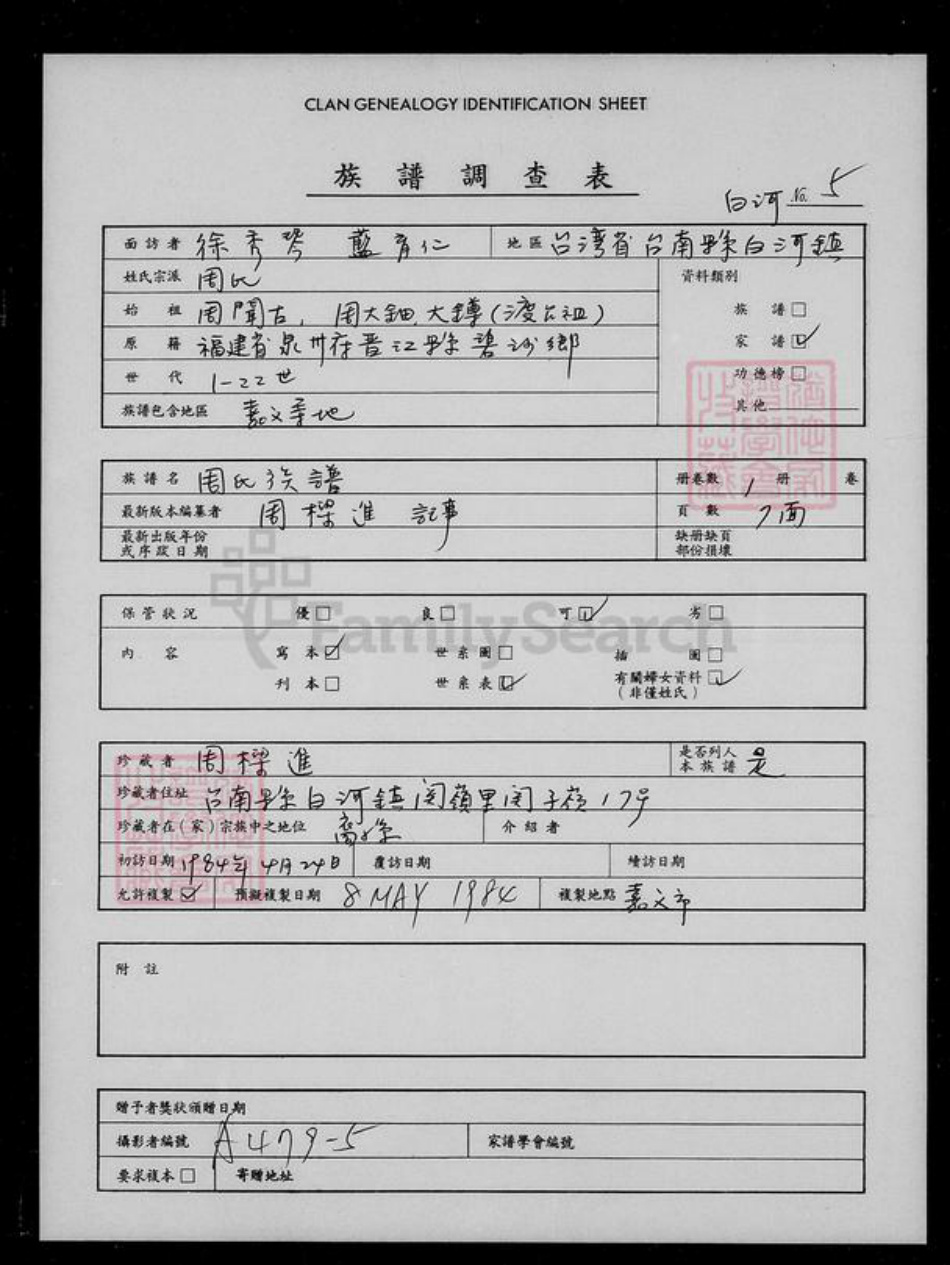 CLAN GENEALOGY IDENTIFICATION SHEET
族譜調查表
白河 No. 5
面訪者 徐秀琴 藍育仁 地區 台湾省台南縣白河鎮
姓氏宗派 周氏 資料類別
始祖 周聞古, 周大鈿、大鏄(渡台祖) 族譜☐
原籍 福建省泉州府晋江縣碧沙鄉 家譜☑
世代 1-22世 功德榜☐
族譜包含地區 嘉义等地 其他
族譜名 周氏族譜 册卷數 1 册 卷
最新版本編纂者 周樑進 記事 頁數 7面
最新出版年份 缺册缺頁
或序跋日期 部份損壞
保管狀況 優☐ 良☐ 可☑ 劣☐
內容 寫本☑ 世系圖☐ 插圖☐
刊本☐ 世系表☑ 有關婦女資料☑
(非僅姓氏)
珍藏者 周樑進 是否列入
本族譜 是
珍藏者住址 台南縣白河鎮関嶺里関子嶺17号
珍藏者在(家)宗族中之地位 裔孫 介紹者
初訪日期 1984年4月24日 覆訪日期 續訪日期
允許複製☑ 預擬複製日期 8 MAY 1984 複製地點 嘉义市
附註
贈予者獎狀頒贈日期
攝影者編號 A479-5 家譜學會編號
要求複本☐ 寄贈地址
FamilySearch